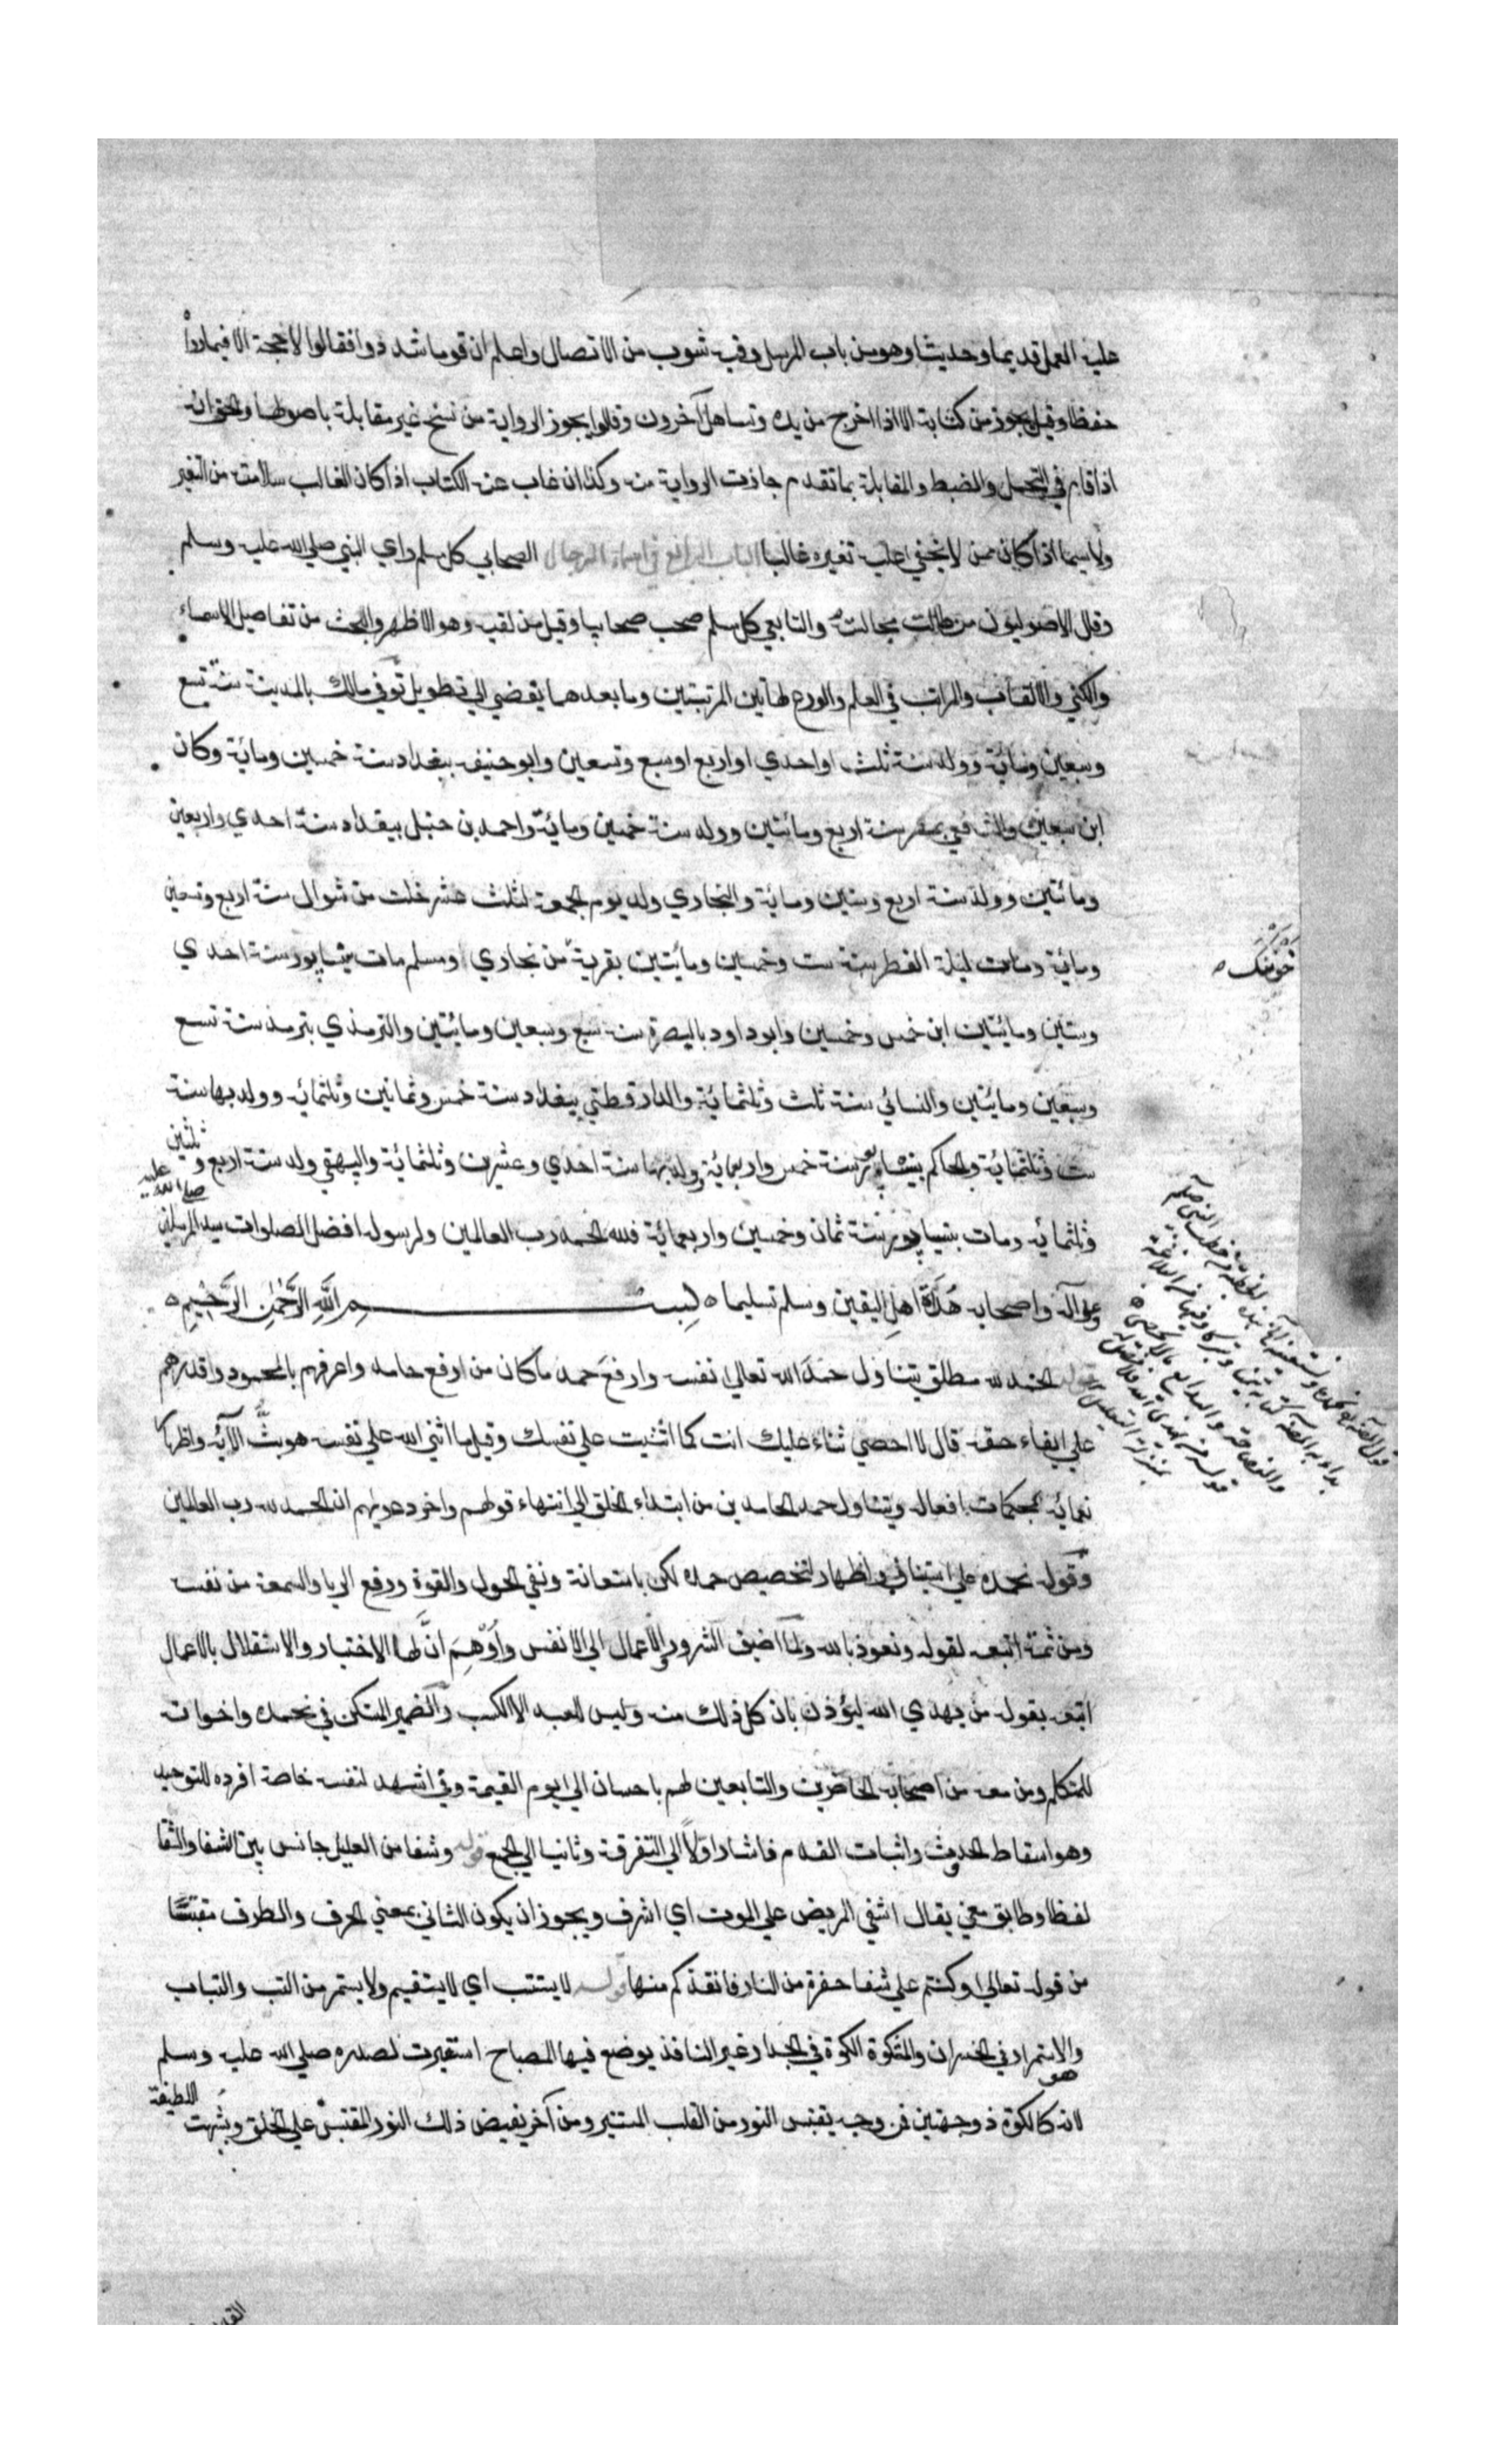 عليه العمل قديما وحديثا وهو من باب المرسل وفيه شوب من الاتصال واعلم ان قوما شددوا فقالوا لا حجة الا فيما رواه
حفظا وقيل يجوز من كتابة الا اذا اخرج من يده وتساهل آخرون وقالوا يجوز الرواية من نسخ غير مقابلة باصولها والحق انه
اذا قام في التحمل والضبط والمقابلة بما تقدم جازت الرواية منه وكذا ان غاب عنه الكتاب اذا كان الغالب سلامته من التغيير
ولا سيما اذا كان ممن لا يخفي عليه تغيره غالبا الباب الرابع في اسماء الرجال الصحابي كل مسلم راي النبي صلي الله عليه وسلم
وقال الاصوليون من طالت مجالسته والتابعي كل مسلم صحب صحابيا وقيل من لقيه وهو الاظهر والبحث من تفاصيل الاسماء
والكني والالقاب والمراتب في العلم والورع لهاتين المرتبتين وما بعدهما يفضي الي تطويل توفي مالك بالمدينة سنة تسع
وسبعين ومائة وولد سنة ثلث او احدي او اربع او سبع وتسعين وابو حنيفه ببغداد سنة خمسين ومائة وكان
ابن سبعين والشافعي بمصر سنة اربع ومائتين وولد سنة خمسين ومائة واحمد بن حنبل ببغداد سنة احدي واربعين
ومائتين وولد سنة اربع وستين ومائة والبخاري ولد يوم الجمعة لثلث عشر خلت من شوال سنة اربع وتسعين
ومائة ومات ليلة الفطر سنة ست وخمسين ومائتين بقرية من بخاري ومسلم مات بنيسابور سنة احدي
خرتنك
وستين ومائتين ابن خمس وخمسين وابو داود بالبصرة سنة سبع وسبعين ومائتين والترمذي بترمذ سنة تسع
وسبعين ومائتين والنسائي سنة ثلث وثلثمائة والدارقطني ببغداد سنة خمس وثمانين وثلثمائه وولد بها سنة
ست وثلثمائة والحاكم بنيسابور سنة خمس واربعمائة وولد بها سنة احدي وعشرين وثلثمائة والبيهقي ولد سنة اربع وثلثين
وثلثمائه ومات بنيسابور سنة ثمان وخمسين واربعمائة فلله الحمد رب العالمين ولرسوله افضل الصلوات سيد المرسلين صلي الله عليه
وعلي آله واصحابه هداة اهل اليقين وسلم تسليما بسم الله الرحمن الرحيم
قوله الحمد لله مطلق يتناول حمد الله تعالي نفسه وارفع حمد ما كان من ارفع حامد واعرفهم بالمحمود واقدرهم
علي ايفاء حقه قال لا احصي ثناء عليك انت كما اثنيت علي نفسك وقيل ما اثني الله علي نفسه هو بث الآئه واظهار
نعمائه بمحكمات افعاله ويتناول حمد الحامدين من ابتداء الخلق الي انتهاء قولهم واخر دعويهم ان الحمد لله رب العالمين
وقوله نحمده علي استيناف واظهار لتخصيص حمده لكن باستعانة ونفي الحول والقوة ودفع الريا والسمعة من نفسه
ومن ثمة اتبعه لقوله ونعوذ بالله ولما اضيف الشرور والاعمال الي الانفس واوهم ان لها الاختيار والاستقلال بالاعمال
اتبعه بقوله من يهدي الله ليؤذن بان كل ذلك منه وليس للعبد الا الكسب والضمير المستكن في نحمده واخواته
للمتكلم ومن معه من اصحابه الحاضرين والتابعين لهم باحسان الي يوم القيمة وفي اشهد لنفسه خاصة افرده للتوحيد
وهو اسقاط الحدوث واثبات القدم فاشار اولا الي التفرقة وثانيا الي الجمع قوله وشفا من العليل جانس بين الشفا والشفا
لفظا وطابق معني يقال اشفي المريض علي الموت اي اشرف ويجوز ان يكون الثاني بمعني الحرف والطرف مقتبسا
من قوله تعالي وكنتم علي شفا حفرة من النار فانقذكم منها قوله لا يستتب اي لا يستقيم ولا يستمر من التب والتباب
والاستمرار في الخسران والمشكوة الكوة في الجدار غير النافذ يوضع فيها المصباح استعيرت لصدره صلي الله عليه وسلم
لانه هو كالكوة ذو جهتين فمن وجه يقتبس النور من القلب المستنير ومن آخر يفيض ذلك النور المقتبس علي الخلق وشبهت اللطيفة